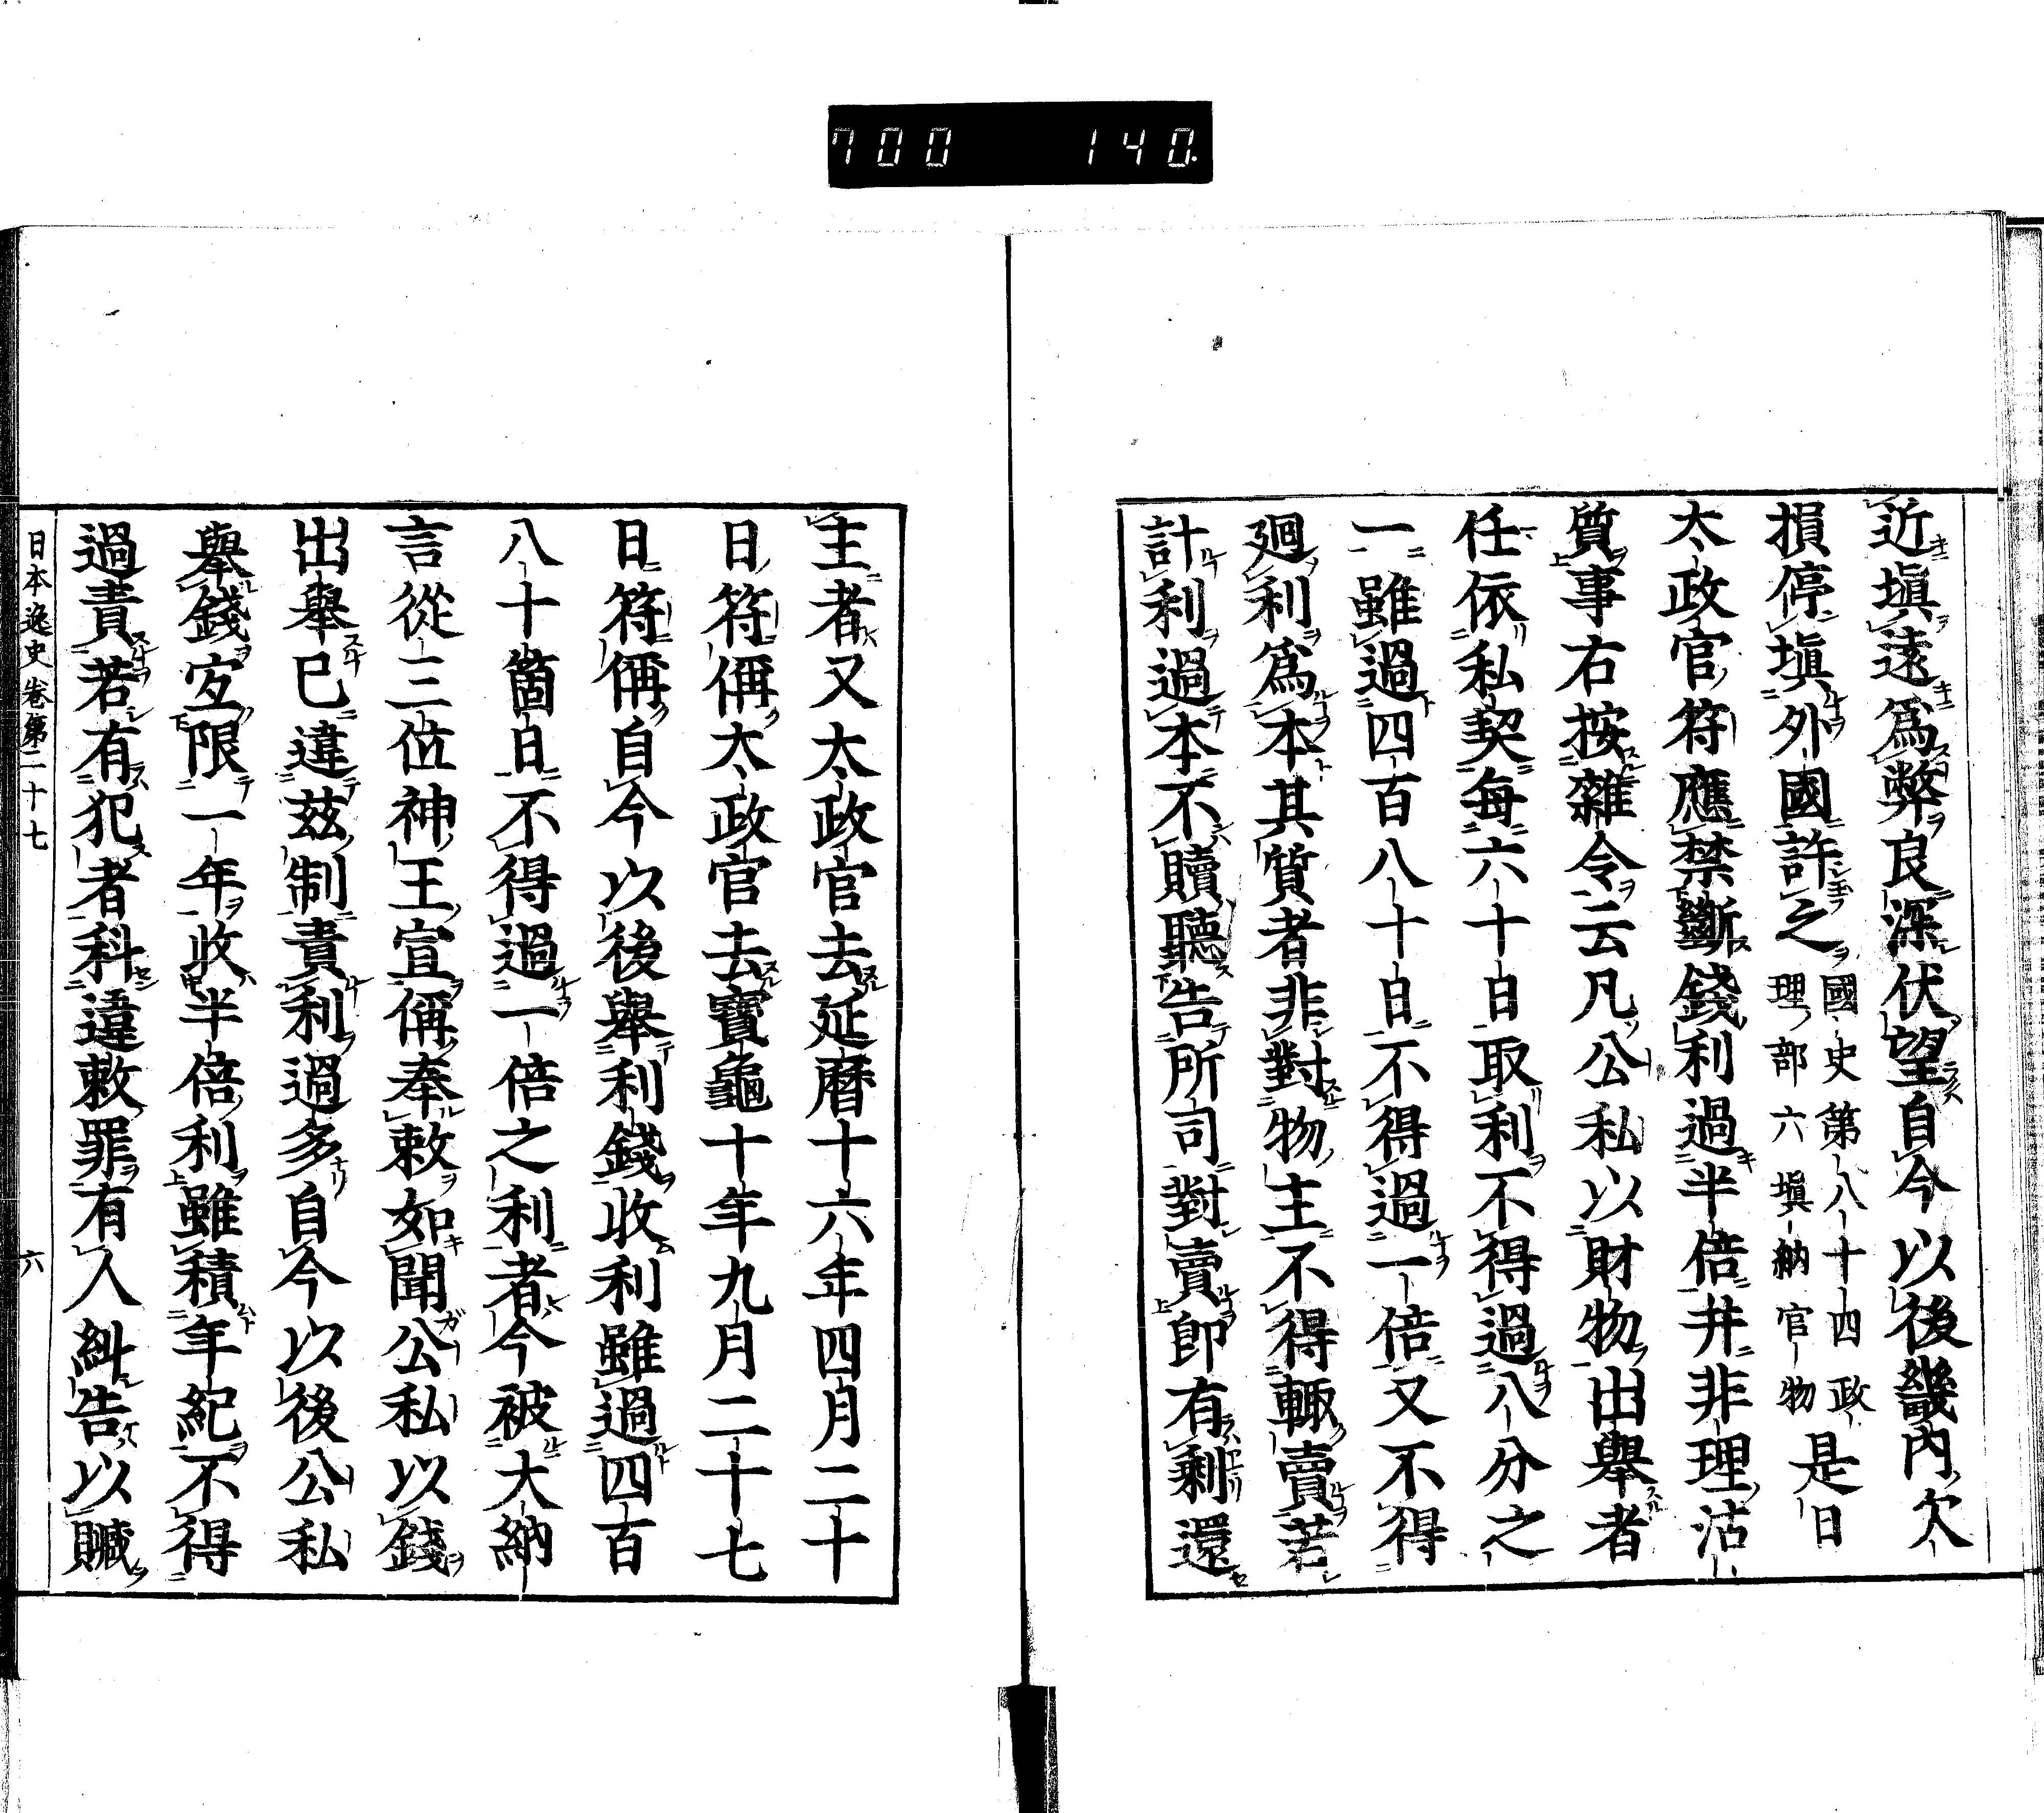 700 140.
近塡遠爲弊良深伏望自今以後畿內欠
損停塡外國許之國史第八十四政理部六塡納官物是日
太政官符應禁斷錢利過半倍并非理沽
質事右按雜令云凡公私以財物出擧者
任依私契每六十日取利不得過八分之
一雖過四百八十日不得過一倍又不得
廻利爲本其質者非對物主不得輙賣若
計利過本不贖聽告所司對賣卽有剩還
主者又太政官去延曆十六年四月二十
日符偁太政官去寶龜十年九月二十七
日符偁自今以後擧利錢收利雖過四百
八十箇日不得過一倍之利者今被大納
言從三位神王宣偁奉敕如聞公私以錢
出擧已違玆制責利過多自今以後公私
擧錢宐限一年收半倍利雖積年紀不得
過責若有犯者科違敕罪有人糾告以贓
日本逸史卷第二十七 六